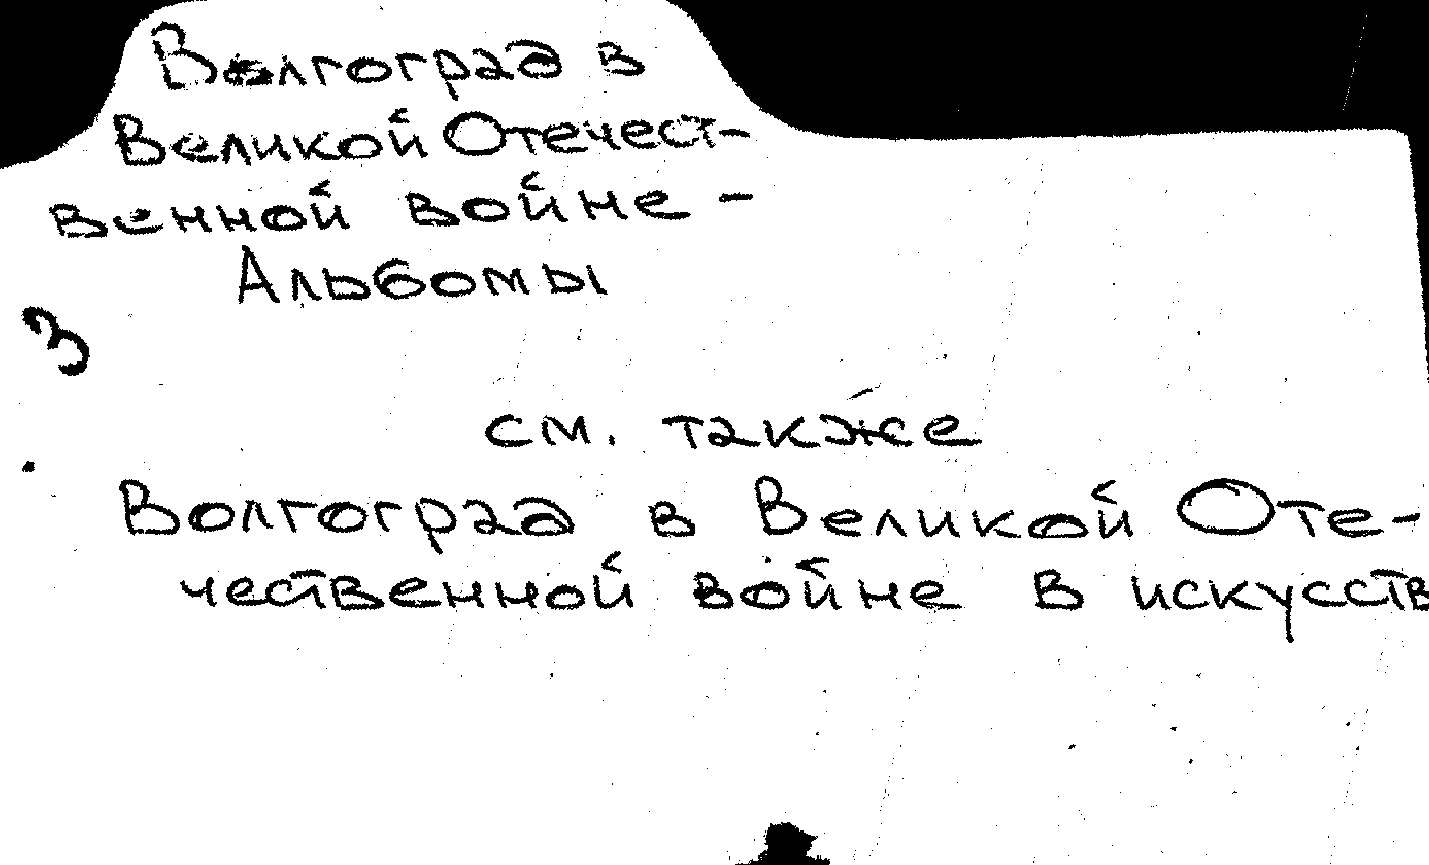 Волгоград в
Великой Отечест-
венной войне -
Альбомы
3
см. также
Волгоград в Великой Оте-
чественной войне в искусств